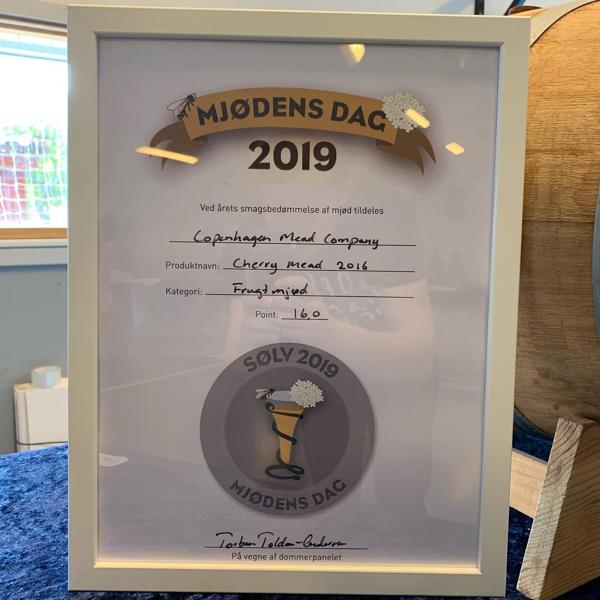 MJØDENS DAG
2019
Ved årets smagsbedømmelse af mjød tildeles
Copenhagen Mead Company
Produktnavn: Cherry Mead 2016
Kategori: Frugtmjød
Point: 16,0
SØLV 2019
MJØDENS DAG
Torben
På vegne af dommerpanelet